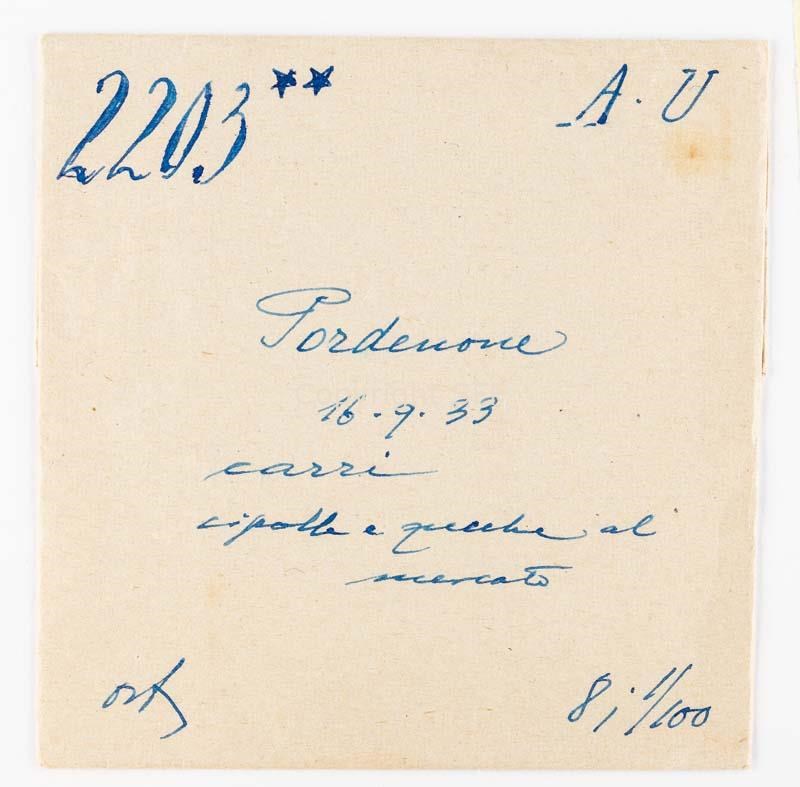 2203** A. U
Pordenone
16.9.33
carri
cipolle e zucche al
mercato
8 i 1/100